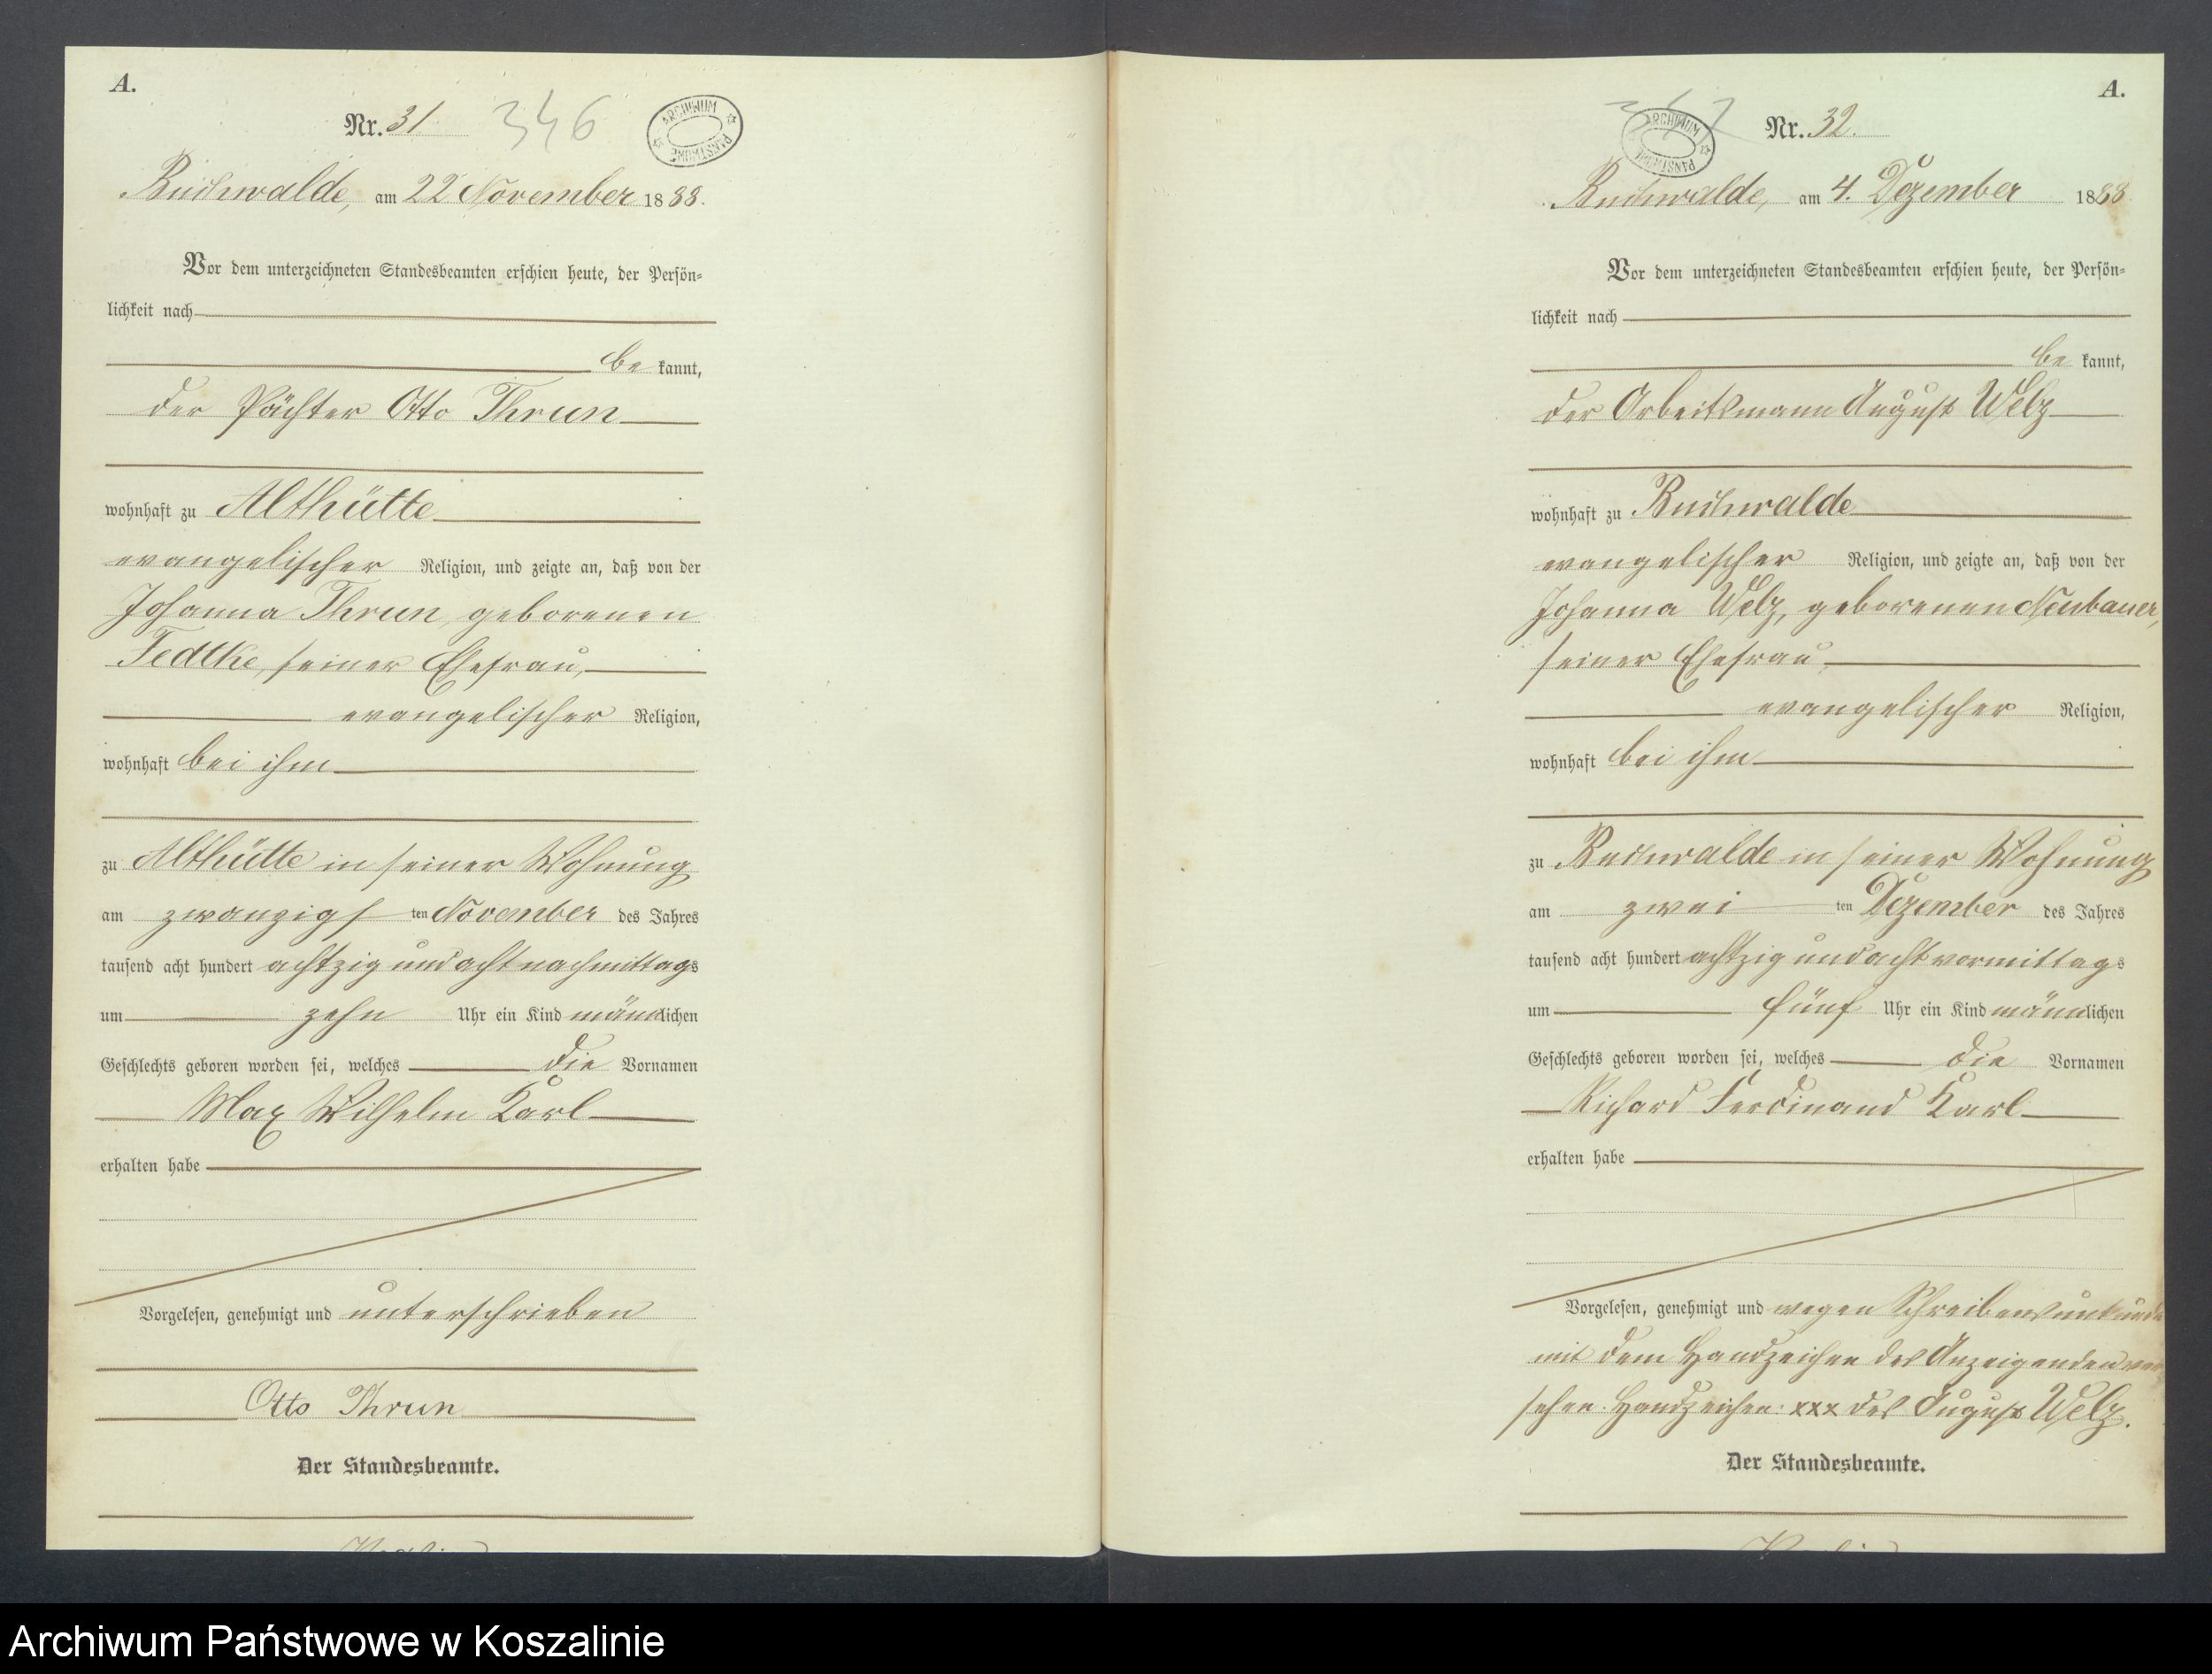 A.
Nr. 31
346
ARCHIWUM PAŃSTWOWE
Buchwalde, am 22 November 1888.
Vor dem unterzeichneten Standesbeamten erschien heute, der Persön-
lichkeit nach
be kannt,
der Pächter Otto Thrun
wohnhaft zu Althütte
evangelischer Religion, und zeigte an, daß von der
Johanna Thrun, geborenen
Fedtke, seiner Ehefrau,
evangelischer Religion,
wohnhaft bei ihm
zu Althütte in seiner Wohnung
am zwanzigs ten November des Jahres
tausend acht hundert achtzig und acht nachmittags
um zehn Uhr ein Kind männlichen
Geschlechts geboren worden sei, welches die Vornamen
Max Wilhelm Karl
erhalten habe
Vorgelesen, genehmigt und unterschrieben
Otto Thrun
Der Standesbeamte.
A.
347
ARCHIWUM PAŃSTWOWE
Nr. 32.
Buchwalde, am 4. Dezember 1888
Vor dem unterzeichneten Standesbeamten erschien heute, der Persön-
lichkeit nach
be kannt,
der Arbeitsmann August Welz
wohnhaft zu Buchwalde
evangelischer Religion, und zeigte an, daß von der
Johanna Welz, geborenen Neubauer,
seiner Ehefrau
evangelischer Religion,
wohnhaft bei ihm
zu Buchwalde in seiner Wohnung
am zwei ten Dezember des Jahres
tausend acht hundert achtzig und acht vormittags
um fünf Uhr ein Kind männlichen
Geschlechts geboren worden sei, welches die Vornamen
Richard Ferdinand Karl
erhalten habe
Vorgelesen, genehmigt und wegen Schreibensunkunde
mit dem Handzeichen des Anzeigenden ver
sehen. Handzeichen: xxx des August Welz.
Der Standesbeamte.
Archiwum Państwowe w Koszalinie